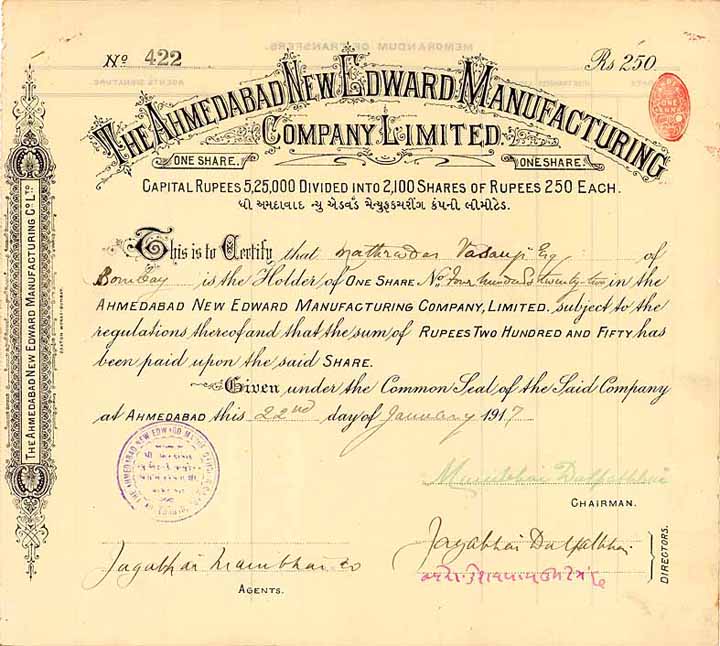 No 422
Rs 250
THE AHMEDABAD NEW EDWARD MANUFACTURING
COMPANY, LIMITED.
ONE SHARE.
ONE SHARE.
CAPITAL RUPEES 5,25,000 DIVIDED INTO 2,100 SHARES OF RUPEES 250 EACH.
ધી અમદાવાદ ન્યુ એડવર્ડ મેન્યુફેકચરીંગ કંપની લીમીટેડ.
This is to Certify that Mathradas Vasanji Esq of
Bombay is the Holder of ONE SHARE No. Four hundred twenty-two in the
AHMEDABAD NEW EDWARD MANUFACTURING COMPANY, LIMITED. subject to the
regulations thereof and that the sum of RUPEES TWO HUNDRED AND FIFTY has
been paid upon the said SHARE.
Given under the Common Seal of the Said Company
at AHMEDABAD this 22nd day of January 1917
CHAIRMAN.
Jagabhai Dalpatbhai
DIRECTORS.
AGENTS.
THE AHMEDABAD NEW EDWARD MANUFACTURING CO. LTD.
MEMORANDUM OF TRANSFERS.
AGENTS SIGNATURE
ONE ANNA